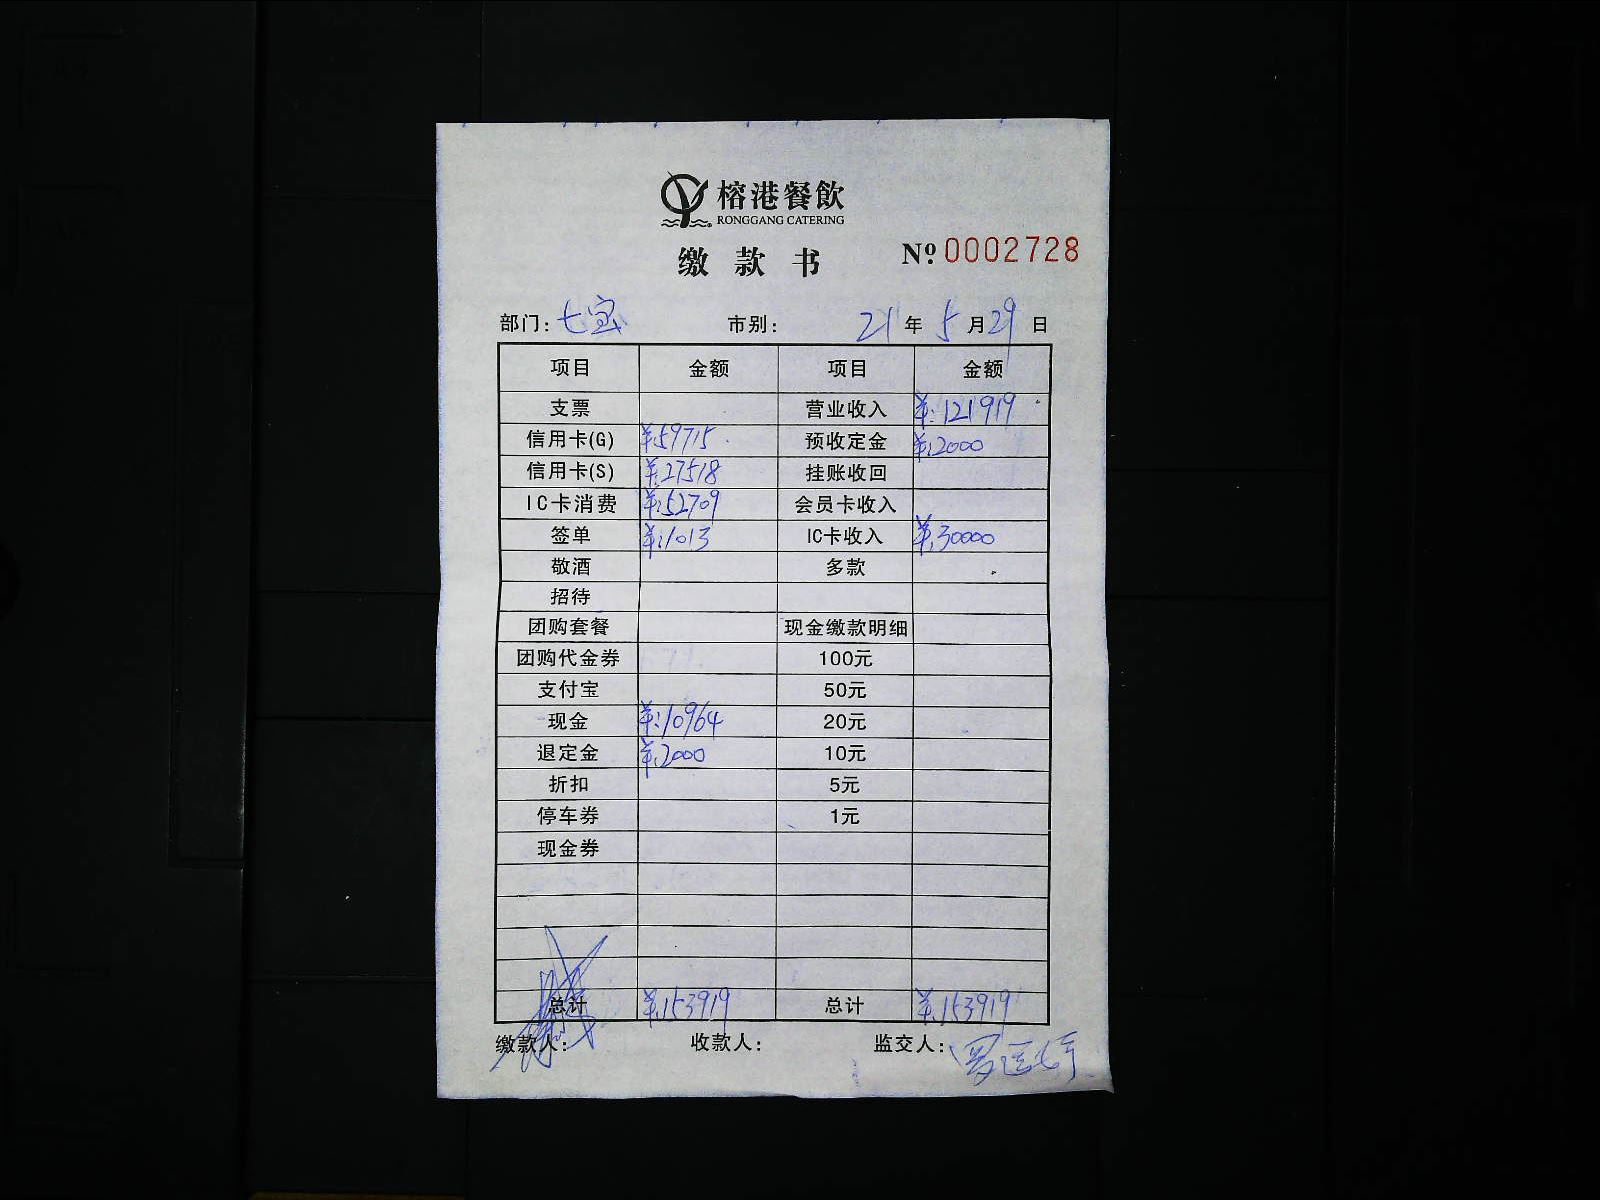 榕港餐飲
RONGGANG CATERING
缴款书 № 0002728
部门: 七宝 市别: 21 年 5 月 29 日
项目 金额 项目 金额
支票 营业收入 ¥:121919
信用卡(G) ¥:59715 预收定金 ¥:2000
信用卡(S) ¥:27518 挂账收回
IC卡消费 ¥:52709 会员卡收入
签单 ¥:1013 IC卡收入 ¥:30000
敬酒 多款
招待
团购套餐 现金缴款明细
团购代金券 100元
支付宝 50元
现金 ¥:10964 20元
退定金 ¥:2000 10元
折扣 5元
停车券 1元
现金券
总计 ¥:153919 总计 ¥:153919
缴款人: 收款人: 监交人: